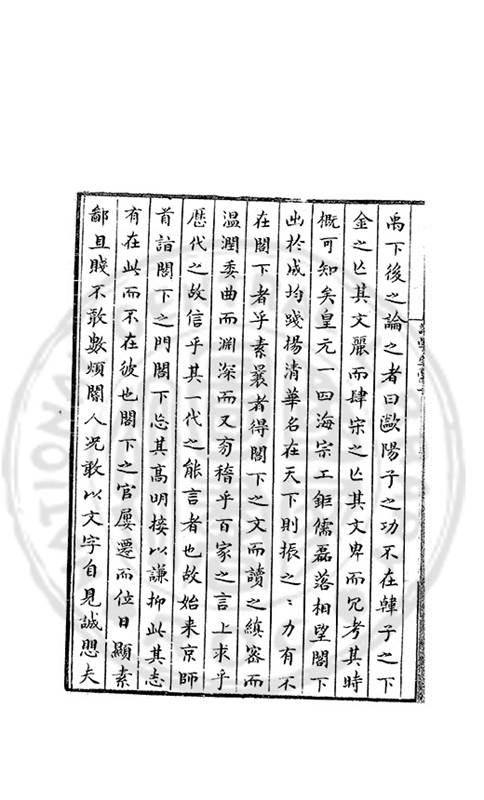 禹下後之論之者曰歐陽子之功不在韓子之下
金之亡其文麗而肆宋之亡其文卑而冗考其時
概可知矣皇元一四海宗工鉅儒磊落相望閣下
出於成均踐揚清華名在天下則振之〻力有不
在閣下者乎素曩者得閣下之文而讀之縝密而
温潤委曲而淵深而又旁稽乎百家之言上求乎
歷代之故信乎其一代之能言者也故始来京師
首詣閣下之門閣下忘其高明接以謙抑此其志
有在此而不在彼也閣下之官屢遷而位日顯素
鄙且賤不敢數煩閽人况敢以文字自見誠思夫